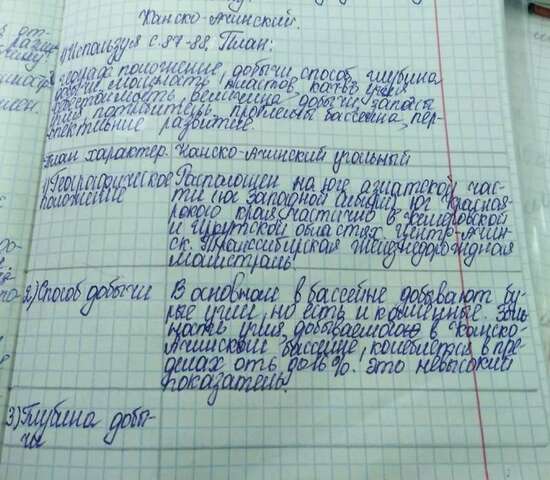 Канско-Ачинский.
1) Используя с.87-88, План:
положение, добычи, способ, глубина
добычи, мощность пластов, кач-во угля
себестоимость, величина добычи, запасы
угля, потребитель, проблемы бассейна, пер-
спективные развитие.
План характер. Канско-Ачинский угольный
1) Географическое положение
Расположен на юге азиатской час-
ти (юг Западной Сибири), юг Красно-
ярского края, частично в Кемеровской
и Иркутской областях. Центр-Ачин-
ск. Транссибирская железнодорожная
магистраль!
2) Способ добычи
В основном в бассейне добывают бу-
рые угли, но есть и каменные. Золь-
ность угля добываемого в Канско-
Ачинском бассейне, колеблется в пре-
делах от 6, до 16%. Это невысокий
показатель.
3) Глубина добы-
чи